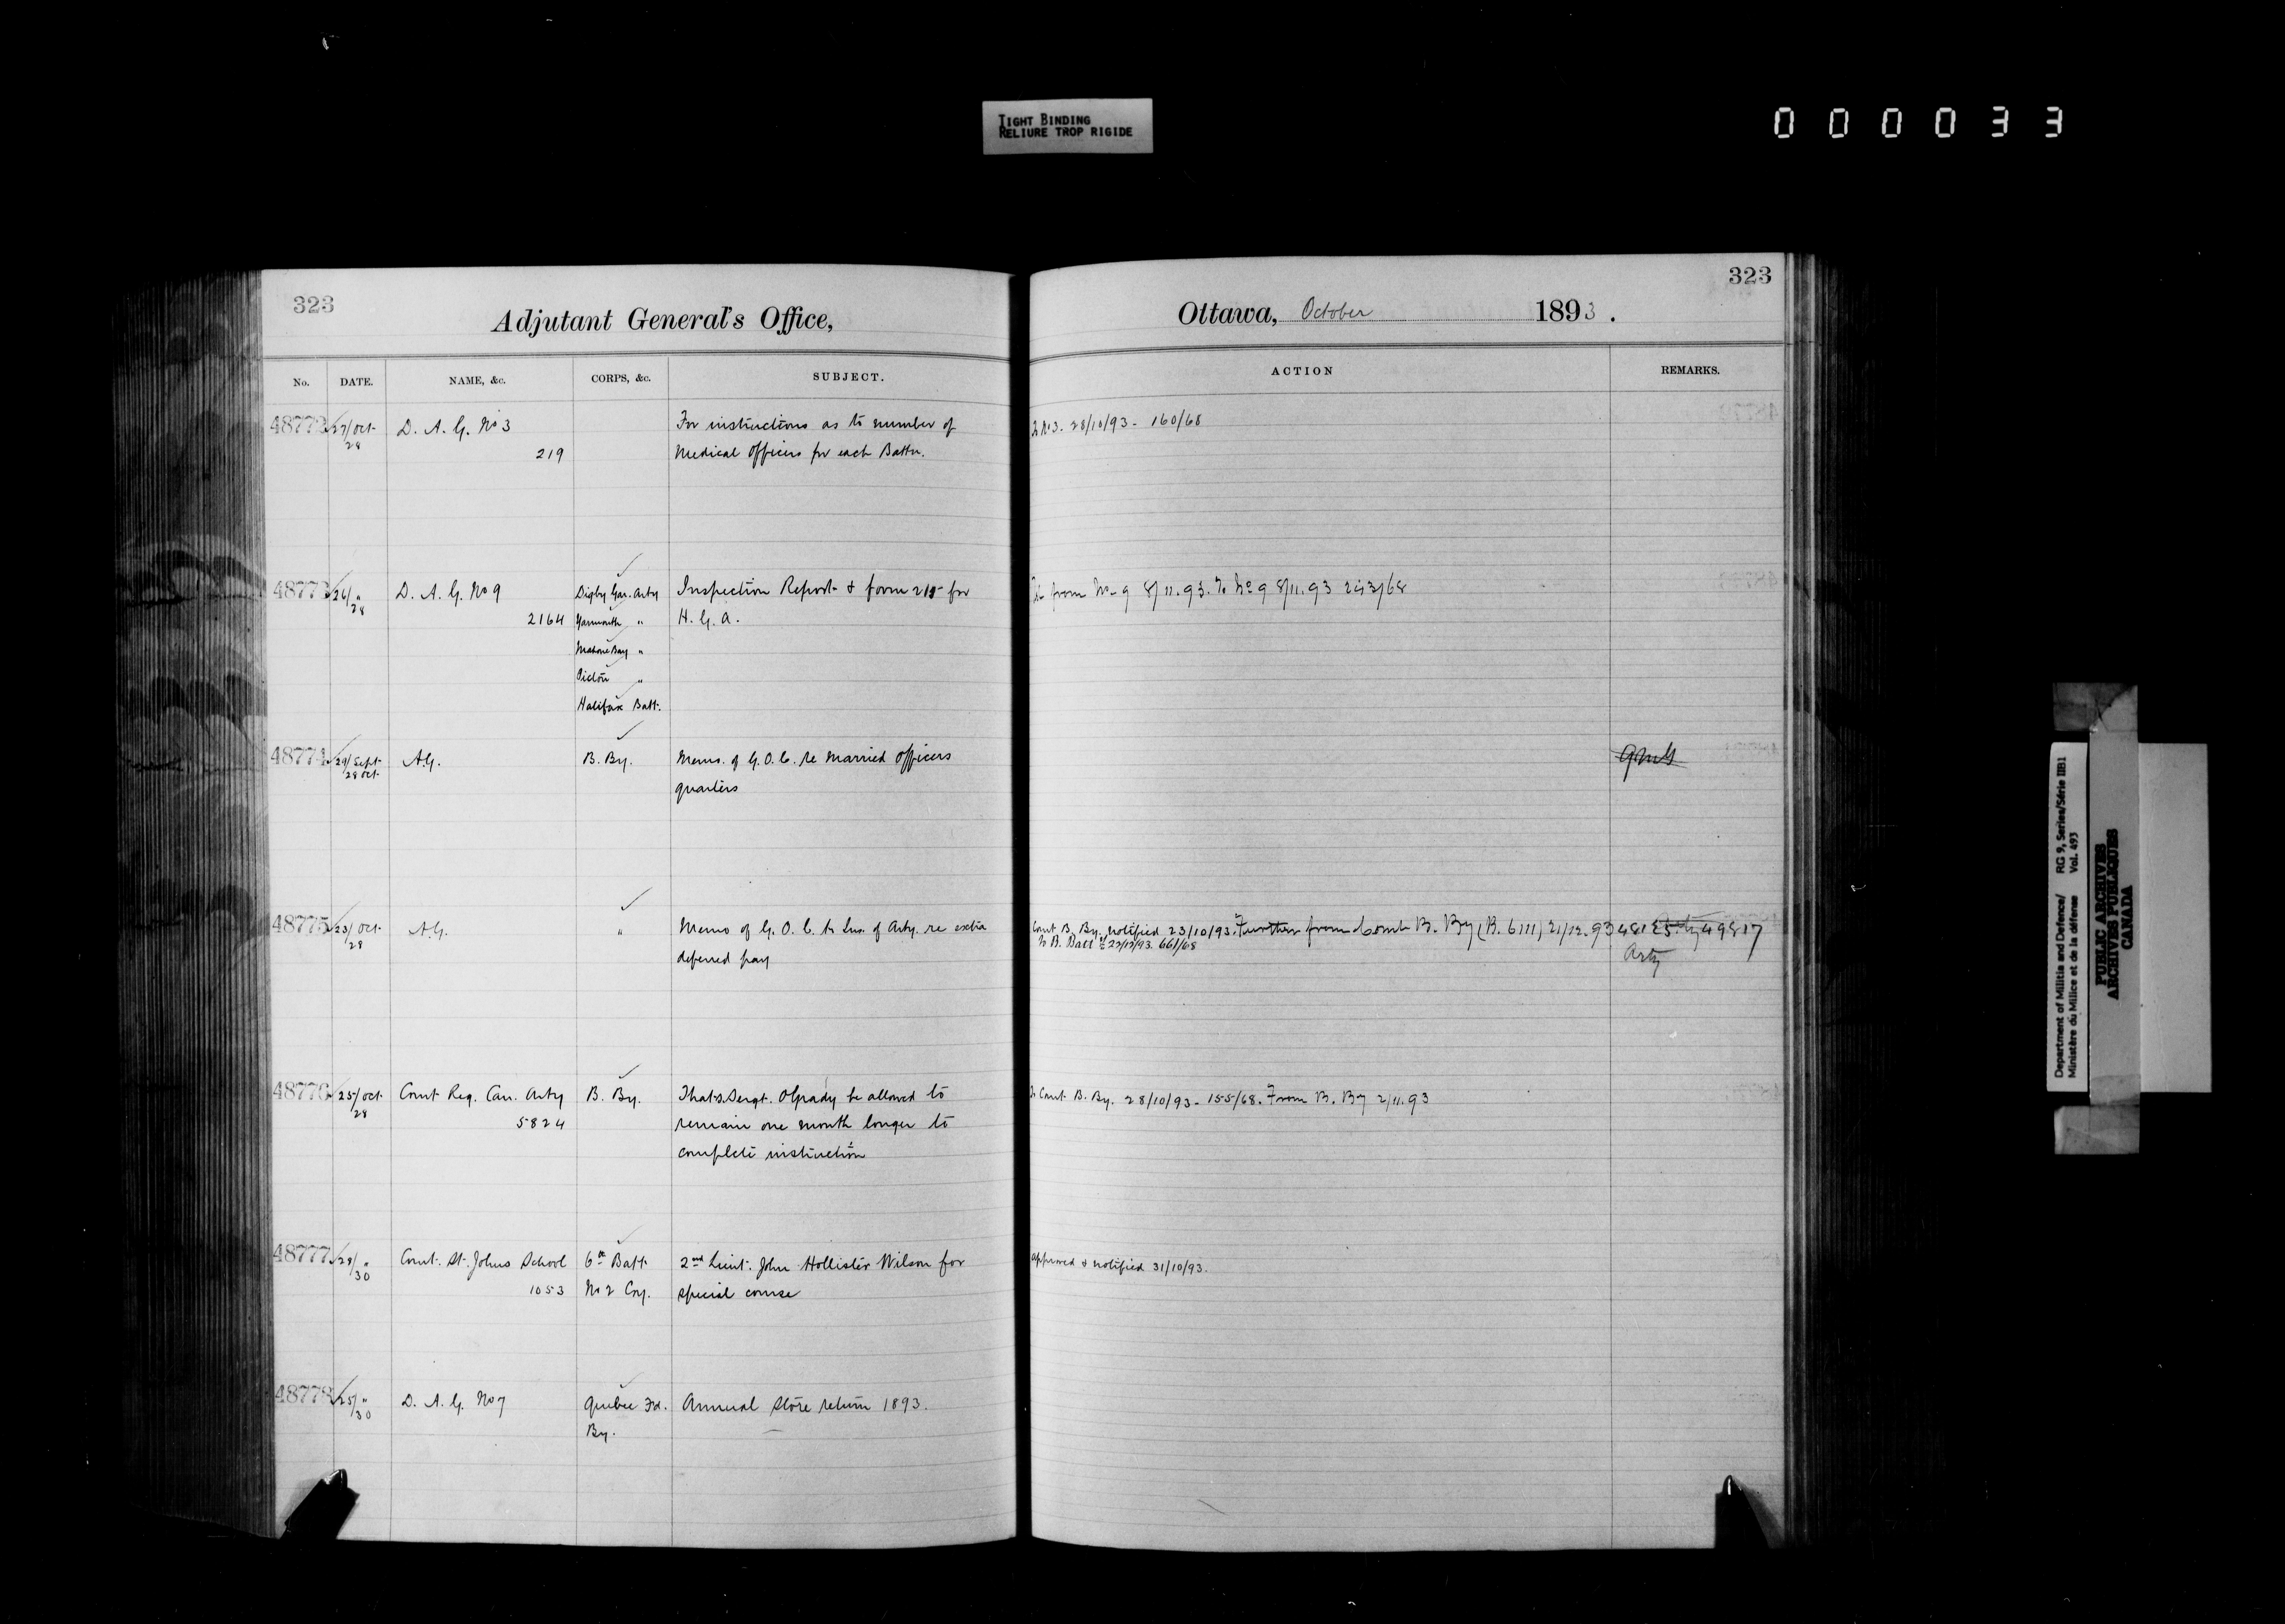 TIGHT BINDING
RELIURE TROP RIGIDE
000033
323
Adjutant General's Office,
No. DATE. NAME, &c. CORPS, &c. SUBJECT.
48772 27/Oct 28 D. A. G. No 3 For instructions as to number of
219 Medical Officers for each Battn.
48773 26/" 28 D. A. G. No 9 Digby Gar. Arty Inspection Report & form 215 for
2164 Yarmouth " H. G. A.
Mahone Bay "
Pictou "
Halifax Batt.
48774 29/Sept 28 Oct A.G. B. By. Memo. of G. O. C. re Married Officers
quarters
48775 23/Oct 28 A.G. " Memo of G. O. C. to Ins. of Arty. re extra
deferred pay
48776 25/Oct 28 Comt Reg. Can. Arty B. By. That Sergt. OGrady be allowed to
5824 remain one month longer to
complete instruction
48777 28/" 30 Comt. St. Johns School 6th Batt. 2nd Lieut. John Hollister Wilson for
1053 No 2 Coy. special course
48778 25/" 30 D. A. G. No 7 Quebec Fd. Annual Store return 1893.
By.
323
Ottawa, October 1893.
ACTION REMARKS.
To No 3. 28/10/93 - 160/68
from No 9 8/11.93. To No 9 8/11.93 243/68
QMG
Comt B. By. notified 23/10/93. Further from Comt B. By (B. 6111) 21/12.93 48125 49817
To B. Batt 22/12/93. 661/68
Arty
To Comt. B. By. 28/10/93 - 155/68. From B. By 2/11.93
Approved & notified 31/10/93.
Department of Militia and Defence/ RG 9, Series/Série IIB1
Ministère du Milice et de la défense Vol. 493
PUBLIC ARCHIVES
ARCHIVES PUBLIQUES
CANADA